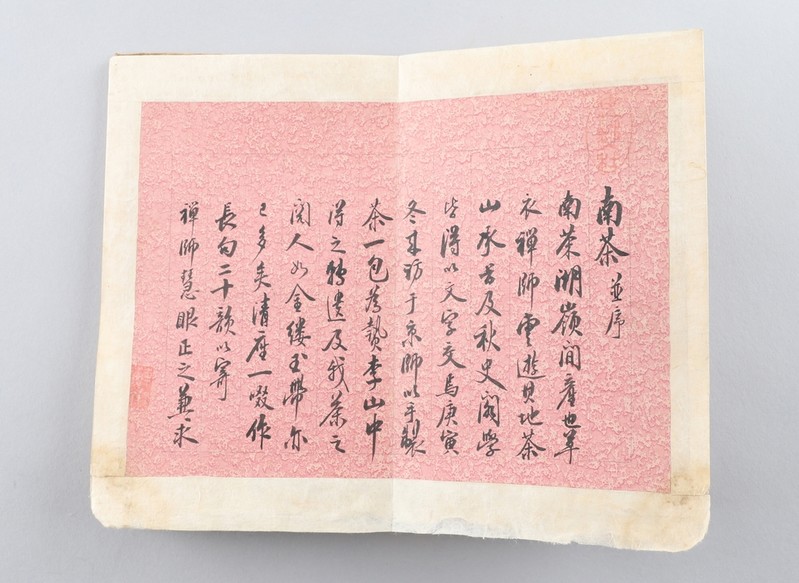 南茶 並序
南茶湖嶺間產也草
衣禪師雲遊其地茶
山承旨及秋史閣學
皆得以文字交焉庚寅
冬來訪于京師以手製
茶一包為贄李山中
得之轉遺及我茶之
閱人如金縷玉帶亦
已多矣清座一啜作
長句二十韻以寄
禪師慧眼正之兼求